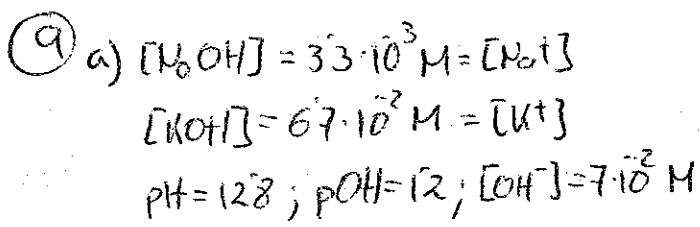 9 a) [NaOH] = 3'3·10⁻³ M = [Na⁺]
[KOH] = 6'7·10⁻² M = [K⁺]
pH = 12'8 ; pOH = 1'2 ; [OH⁻] = 7·10⁻² M